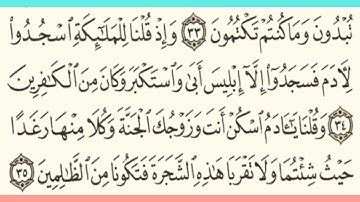 تُبْدُونَ وَمَا كُنتُمْ تَكْتُمُونَ ٣٣ وَإِذْ قُلْنَا لِلْمَلَٰٓئِكَةِ ٱسْجُدُوا۟
لِءَادَمَ فَسَجَدُوٓا۟ إِلَّآ إِبْلِيسَ أَبَىٰ وَٱسْتَكْبَرَ وَكَانَ مِنَ ٱلْكَٰفِرِينَ
٣٤ وَقُلْنَا يَٰٓـَٔادَمُ ٱسْكُنْ أَنتَ وَزَوْجُكَ ٱلْجَنَّةَ وَكُلَا مِنْهَا رَغَدًا
حَيْثُ شِئْتُمَا وَلَا تَقْرَبَا هَٰذِهِ ٱلشَّجَرَةَ فَتَكُونَا مِنَ ٱلظَّٰلِمِينَ ٣٥